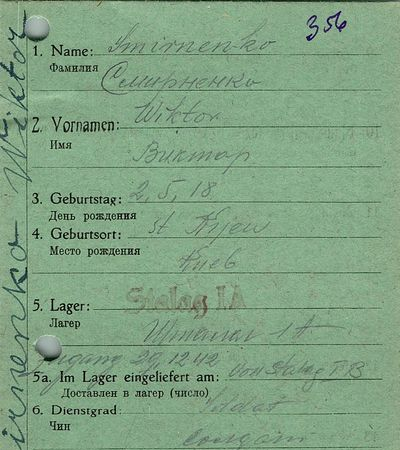 356
1. Name: Smirnenko
Фамилия
Смирненко
2. Vornamen: Wiktor
Имя
Виктор
3. Geburtstag: 2.5.18
День рождения
4. Geburtsort: st Kijew
Место рождения
Киев
5. Lager: Stalag IA
Лагер
Шталаг 1А
29.12.42
5a. Im Lager eingeliefert am: von Stalag
Доставлен в лагер (число)
6. Dienstgrad: Soldat
Чин
Солдат
irnenko Wiktor